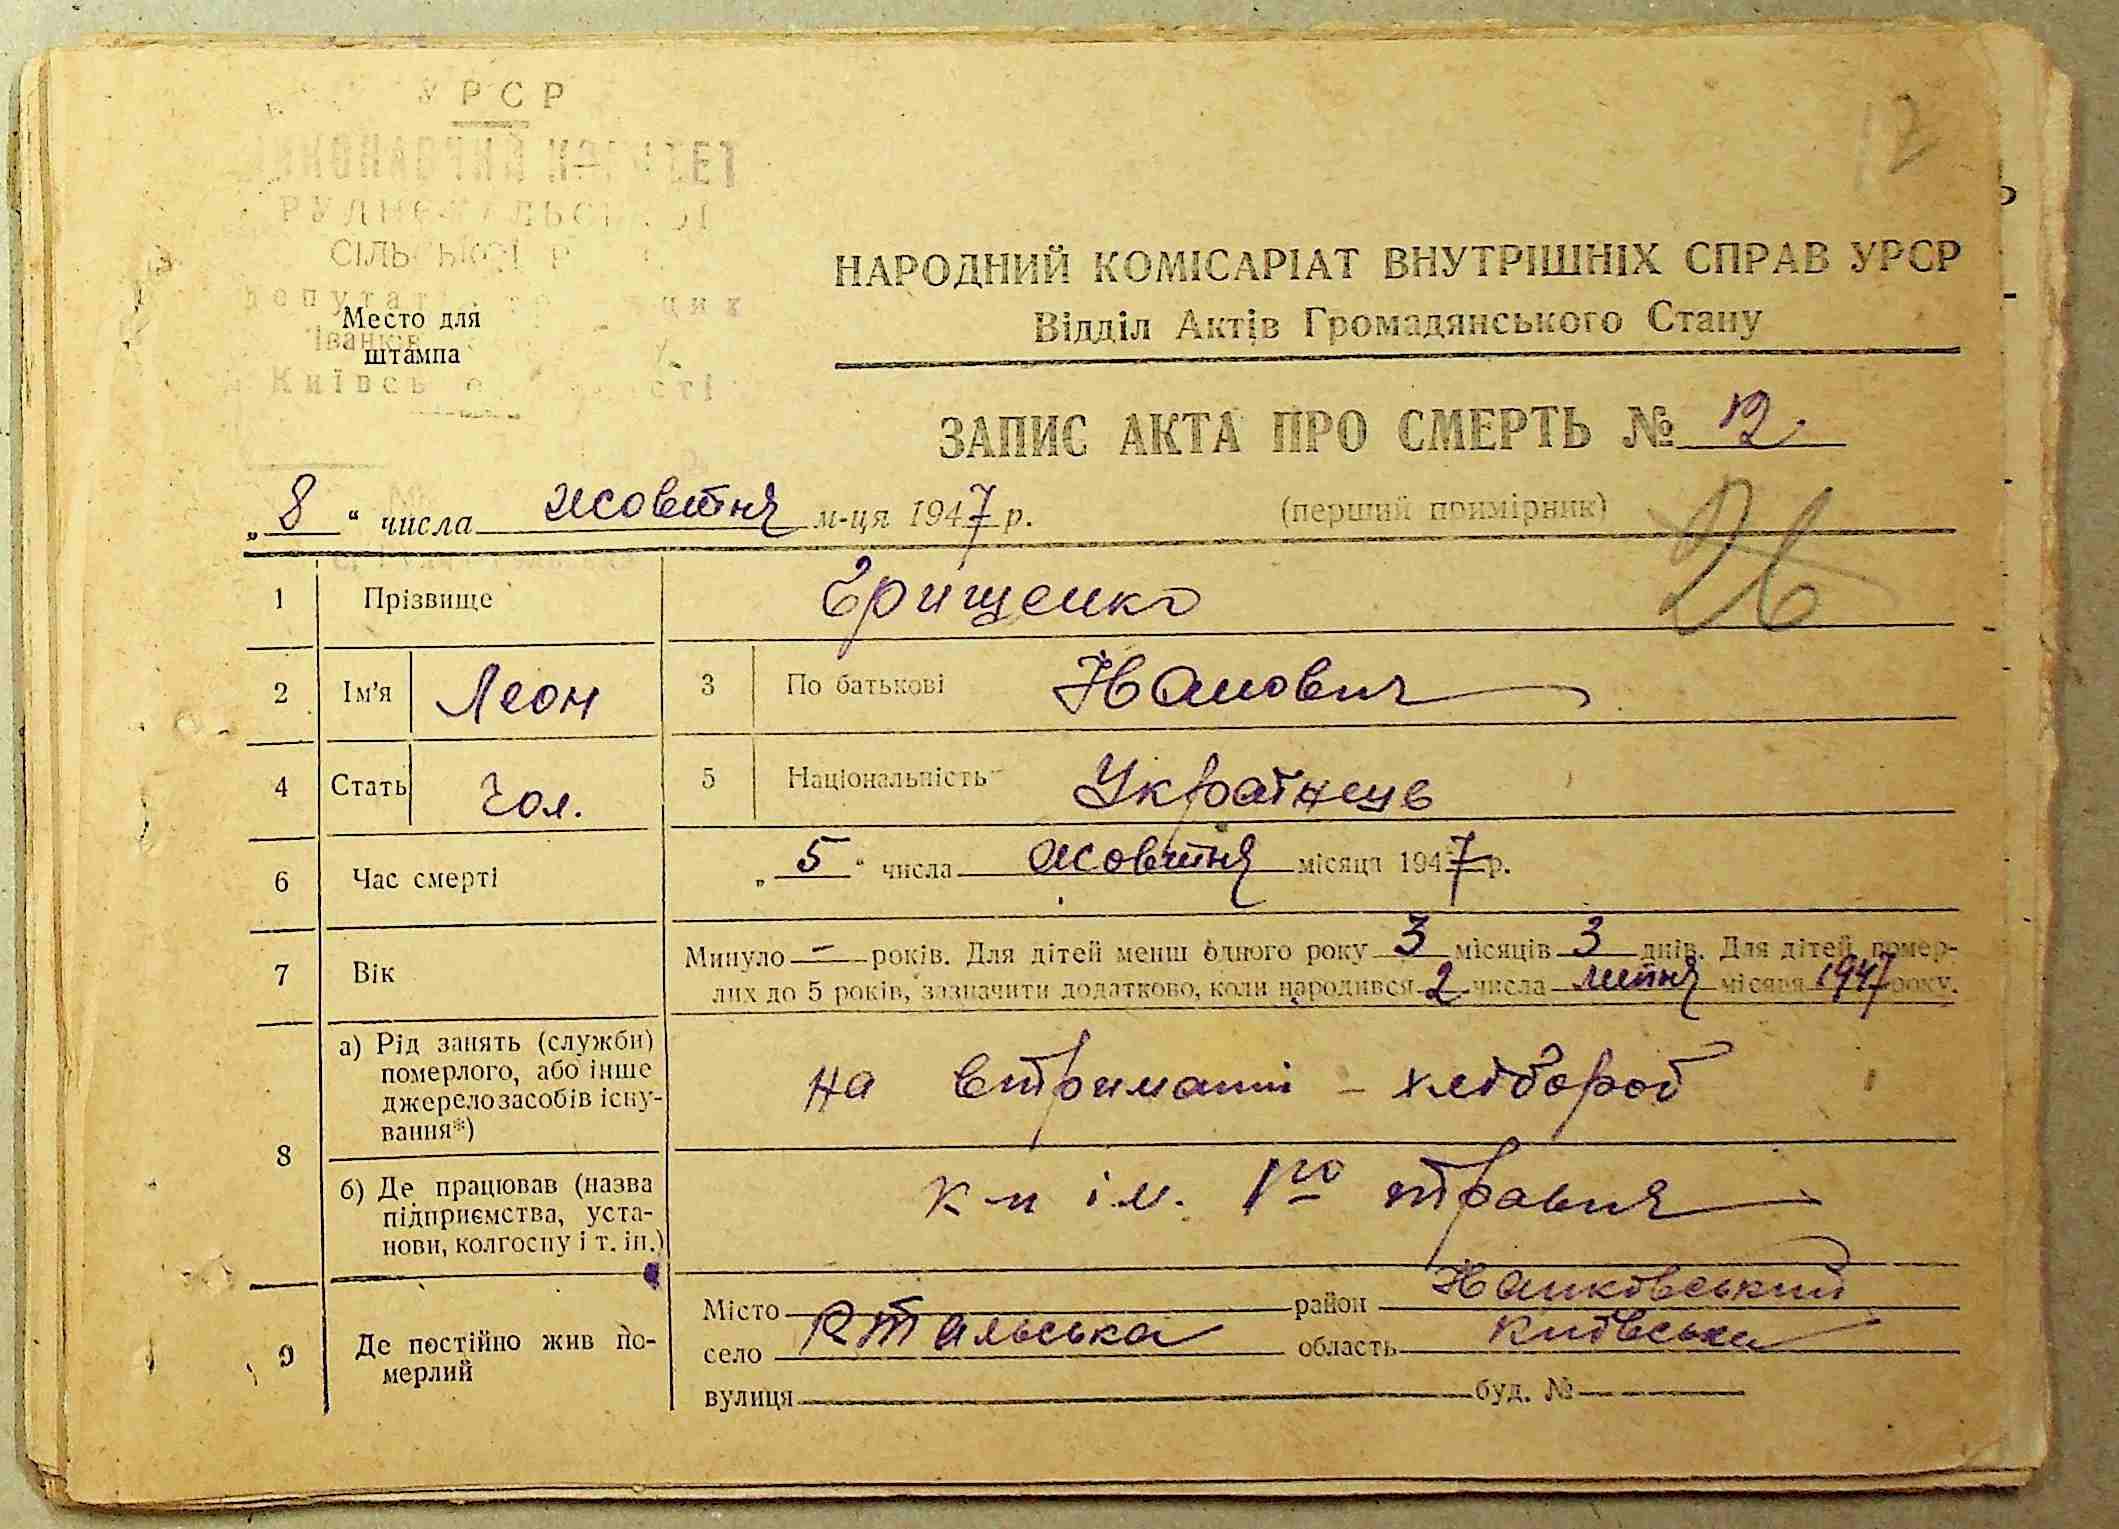 УРСР
СІЛЬСЬКОЇ
Место для
штампа
12
НАРОДНИЙ КОМІСАРІАТ ВНУТРІШНІХ СПРАВ УРСР
Відділ Актів Громадянського Стану
ЗАПИС АКТА ПРО СМЕРТЬ № 12.
„8“ числа жовтня м-ця 1947 р. (перший примірник)
26
1 Прізвище Грищенко
2 Ім'я Леон 3 По батькові Іванович
4 Стать Чол. 5 Національність Українець
6 Час смерті „5“ числа жовтня місяця 1947 р.
7 Вік Минуло - років. Для дітей менш одного року 3 місяців 3 днів. Для дітей помер-
лих до 5 років, зазначити додатково, коли народився 2 числа липня місяця 1947 року.
8 а) Рід занять (служби)
померлого, або інше
джерело засобів існу-
вання*)
на втриманні - хлібороб
б) Де працював (назва
підприємства, уста-
нови, колгоспу і т. ін.)
к-п ім. 1го травня
9 Де постійно жив по-
мерлий
Місто район Іванковський
село Р Тальська область Київська
вулиця буд. №